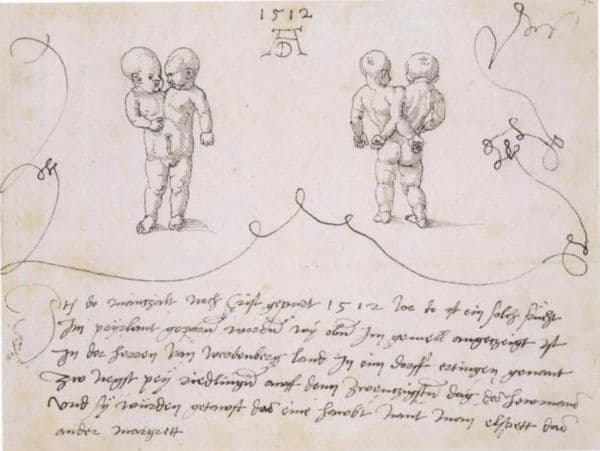 1512
AD
Itē do man tzalt noch Crist gepurt 1512 Jor do ist ein solch frücht
Im peyrlant geporn worden wy obn Im gemell angetzeigt ist
In der herren van werdenberg land In ein dorff ertingen genant
zw negst pey riedlingen awff den zwentzigsten dag des hewmonas
Und sy würden getawft das eine hawbt nant man elspett das
ander margrett